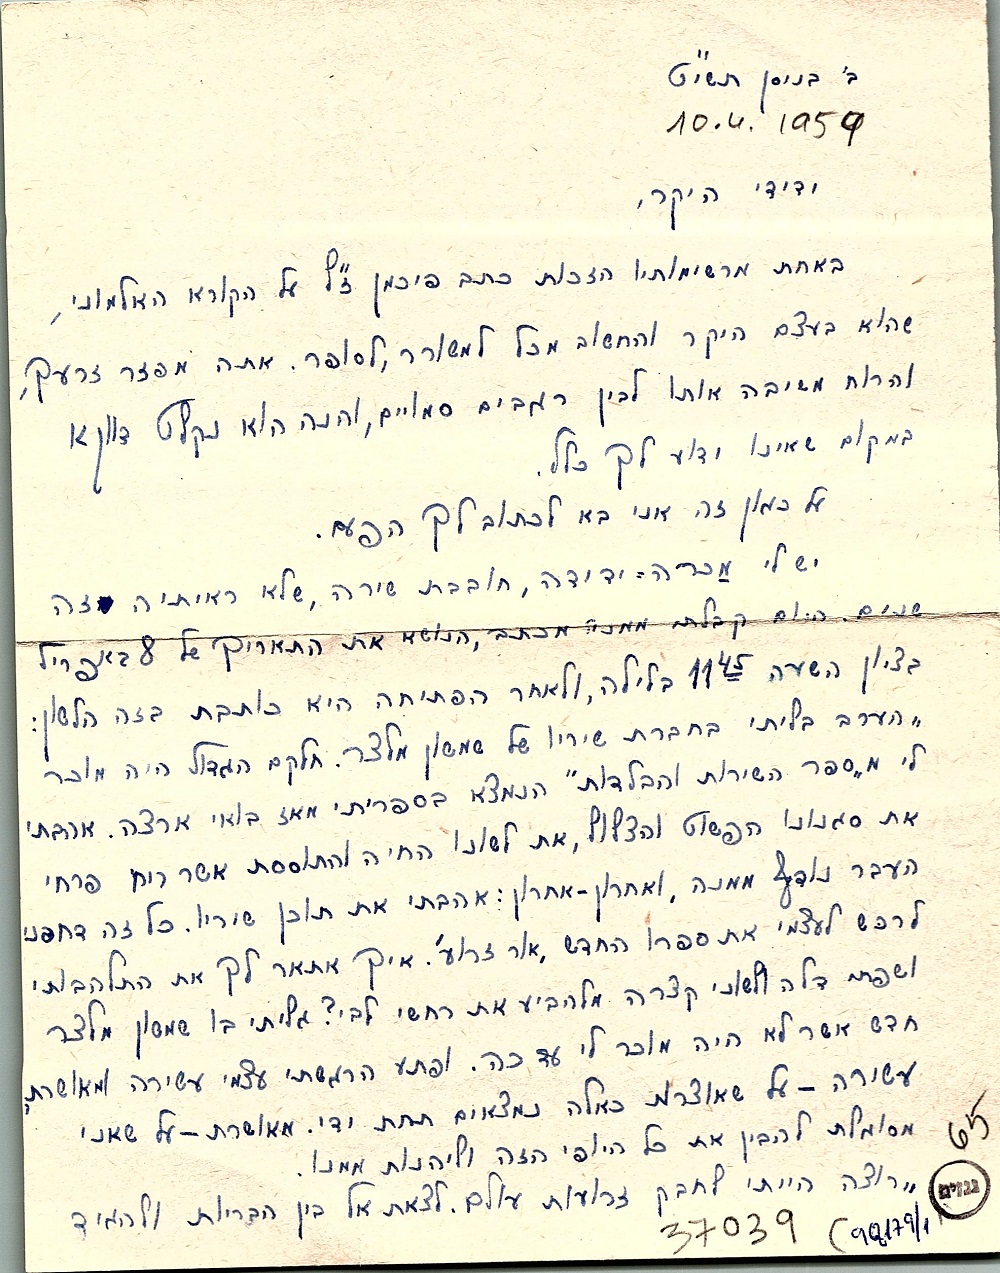 ב' בניסן תשי"ט
10.4. 1959
ידידי היקר,
באחת מרשימותיו הזכות כתב פיכמן ז"ל על הקורא האלמוני,
שהוא בעצם היקר והחשוב מכל למשורר, לסופר. אתה מפזר זרעך,
והרוח משיבה אותו לבין רגבים סמויים, והנה הוא נקלט דווקא
במקום שאינו ידוע לך כלל.
על כגון זה אני בא לכתוב לך הפעם.
יש לי מכרה-ידידה, חובבת שירה, שלא ראיתיה זה
שנים. היום קבלתי ממנה מכתב, הנושא את התאריך של 8 באפריל
בציון השעה 11⁴⁵ בלילה, ולאחר הפתיחה היא כותבת בזה הלשון:
"הערב בליתי בחברת שיריו של שמשון מלצר. חלקם הגדול היה מוכר
לי מ"ספר השירות והבלדות" הנמצא בספריתי מאז בואי ארצה. אהבתי
את סגנונו הפשוט והצלול, את לשונו החיה והתוססת אשר ריח פרחי
העבר נודף ממנה, ואחרון-אחרון: אהבתי את תוכן שיריו. כל זה דחפני
לרכש לעצמי את ספרו החדש 'אור זרוע'. איך אתאר לך את התלהבותי
ושפתי דלה ולשוני קצרה מלהביע את רחשי לבי? גליתי בו שמשון מלצר
חדש אשר לא היה מוכר לי עד כה. ופתע הרגשתי עצמי עשירה ומאושרת,
עשירה – על שאוצרות כאלה נמצאים תחת ידי. מאושרת – על שאני
מסוגלת להבין את כל היופי הזה וליהנות ממנו.
"רוצה הייתי לחבק זרועות עולם. לצאת אל בין הבריות ולהגיד
גנזים
37039